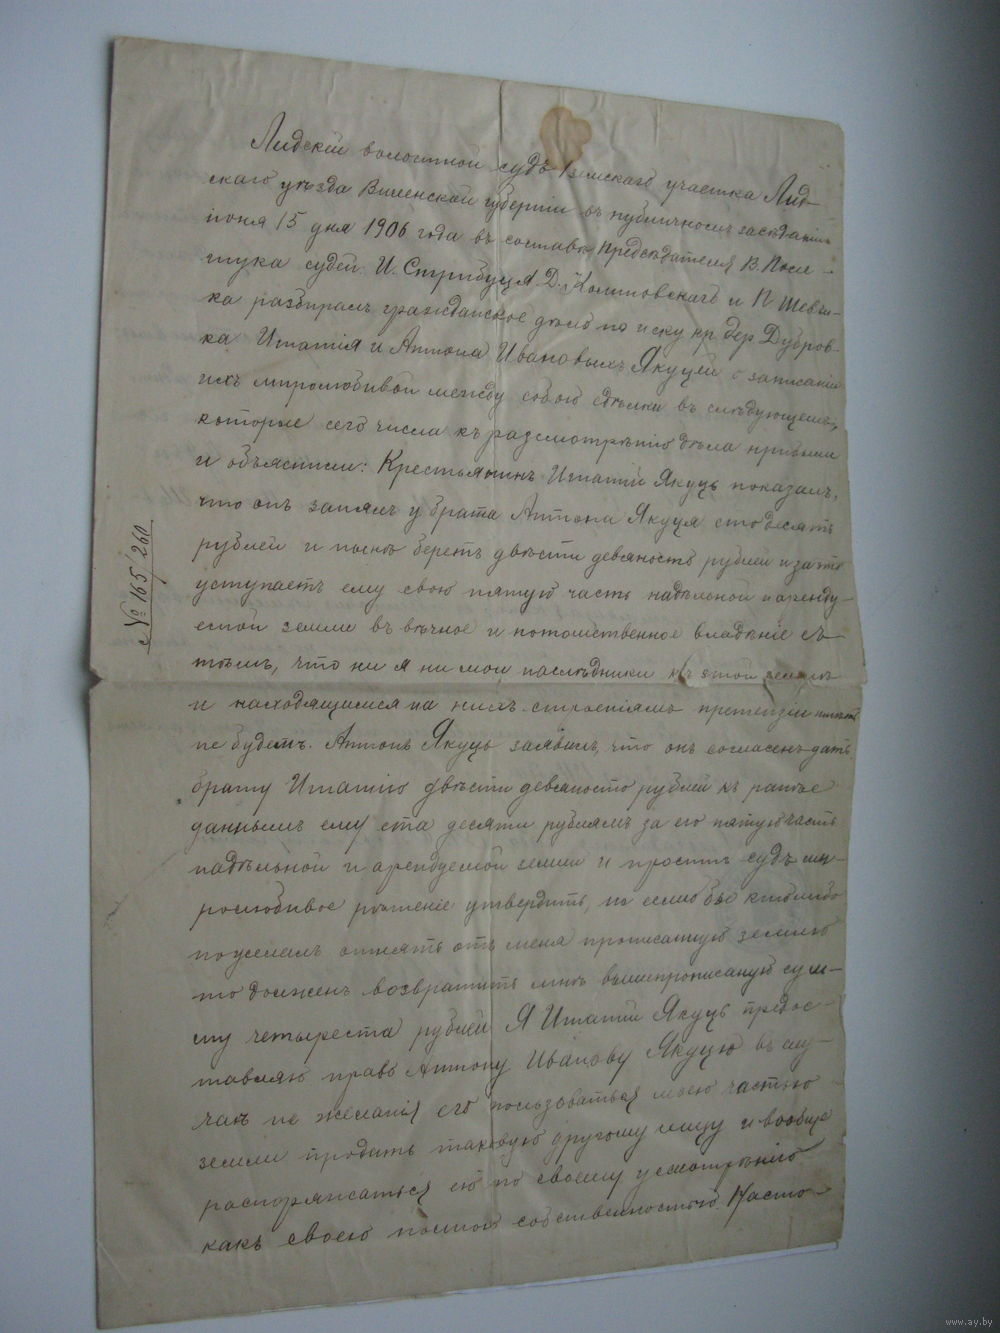 Лидскій волостной судъ 1 земскаго участка Лид-
скаго уѣзда Виленской губерніи въ публичномъ засѣданіи
іюня 15 дня 1906 года въ составѣ Предсѣдателя В.
судей: И. Стрибуця, Д. и П Шевчу-
ка разбиралъ гражданское дѣло по иску кр. дер Дубров-
ка Игнатія и Антона Ивановыхъ Якуцей о записаніи
ихъ миролюбивой между собою сдѣлки въ слѣдующемъ;
которые сего числа къ разсмотрѣнію дѣла прибыли
и объяснили: Крестьянинъ Игнатій Якуць показалъ,
что онъ занялъ у брата Антона Якуця сто десять
рублей и нынѣ беретъ двѣсти девяность рублей и за то
уступаетъ ему свою пятую часть надѣльной и аренду-
емой земли въ вѣчное и потомственное владѣніе съ
тѣмъ, что ни я ни мои наслѣдники къ этой землѣ
и находящимися на нихъ строеніямъ претензіи имѣть
не будетъ. Антонъ Якуць заявилъ, что онъ согласенъ дать
брату Игнатію двѣсти девяносто рублей къ ранѣе
даннымъ ему ста десяти рублямъ за его пятую часть
надѣльной и арендуемой земли и проситъ судъ ми-
ролюбивое рѣшеніе утвердить, но если бы кто либо
пожелалъ отнять отъ меня прописанную землю
то долженъ возвратить мнѣ вышепрописаную сум-
му четыреста рублей Я Игнатій Якуць предос-
тавляю право Антону Иванову Якуцю въ слу-
чаѣ не желанія его пользоваться моею частью
земли продать таковую другому лицу и вообще
распоряжаться ею по своему усмотрѣнію
какъ своею полною собственностью. Насто-
№ 165/260
www.ay.by